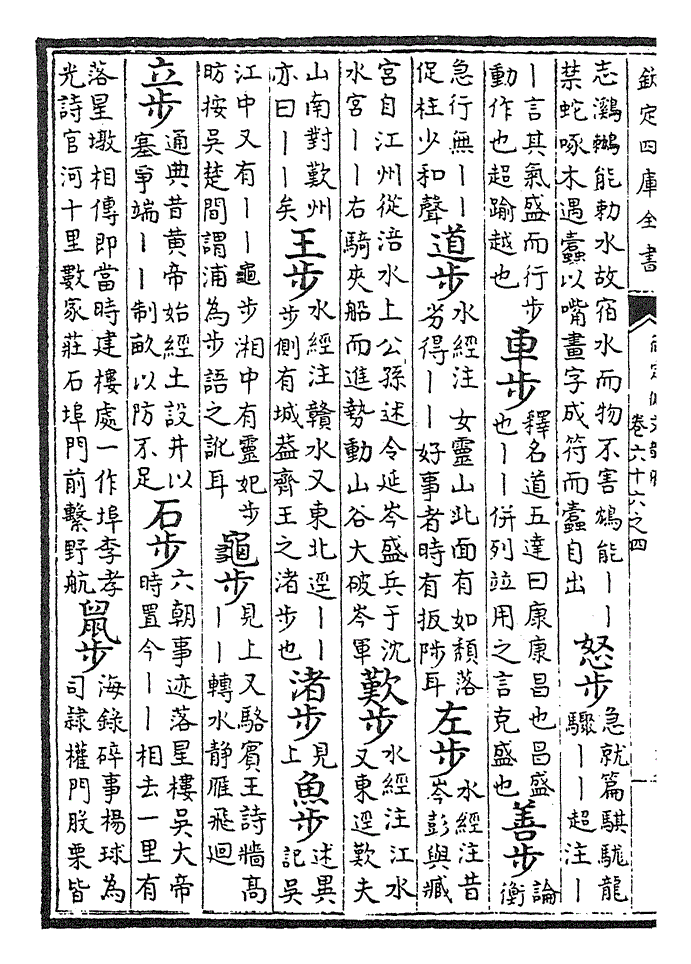 欽定四庫全書
卷六十六之四
志鸂鶒能勅水故宿水而物不害鴆能丨丨
禁蛇啄木遇蠹以嘴畫字成符而蠹自出
怒步
急就篇騏駹龍
驟丨丨超注丨
丨言其氣盛而行步
動作也超踰越也
車步
釋名道五達曰康康昌也昌盛
也丨丨併列竝用之言克盛也
善步
論
衡
急行無丨丨
促柱少和聲
道步
水經注女靈山北面有如頽落
劣得丨丨好事者時有扳陟耳
左步
水經注昔
岑彭與臧
宮自江州從涪水上公孫述令延岑盛兵于沈
水宮丨丨右騎夾船而進勢動山谷大破岑軍
歎步
水經注江水
又東逕歎夫
山南對歎州
亦曰丨丨矣
王步
水經注贛水又東北逕丨丨
步側有城葢齊王之渚步也
渚步
見
上
魚步
述異
記吳
江中又有丨丨龜步湘中有靈妃步
昉按吳楚間謂浦為步語之訛耳
龜步
見上又駱賓王詩牆高
丨丨轉水静雁飛迴
立步
通典昔黄帝始經土設井以
塞爭端丨丨制畝以防不足
石步
六朝事迹落星樓吳大帝
時置今丨丨相去一里有
落星墩相傳即當時建樓處一作埠李孝
光詩官河十里數家莊石埠門前繫野航
鼠步
海錄碎事楊球為
司隷權門股栗皆